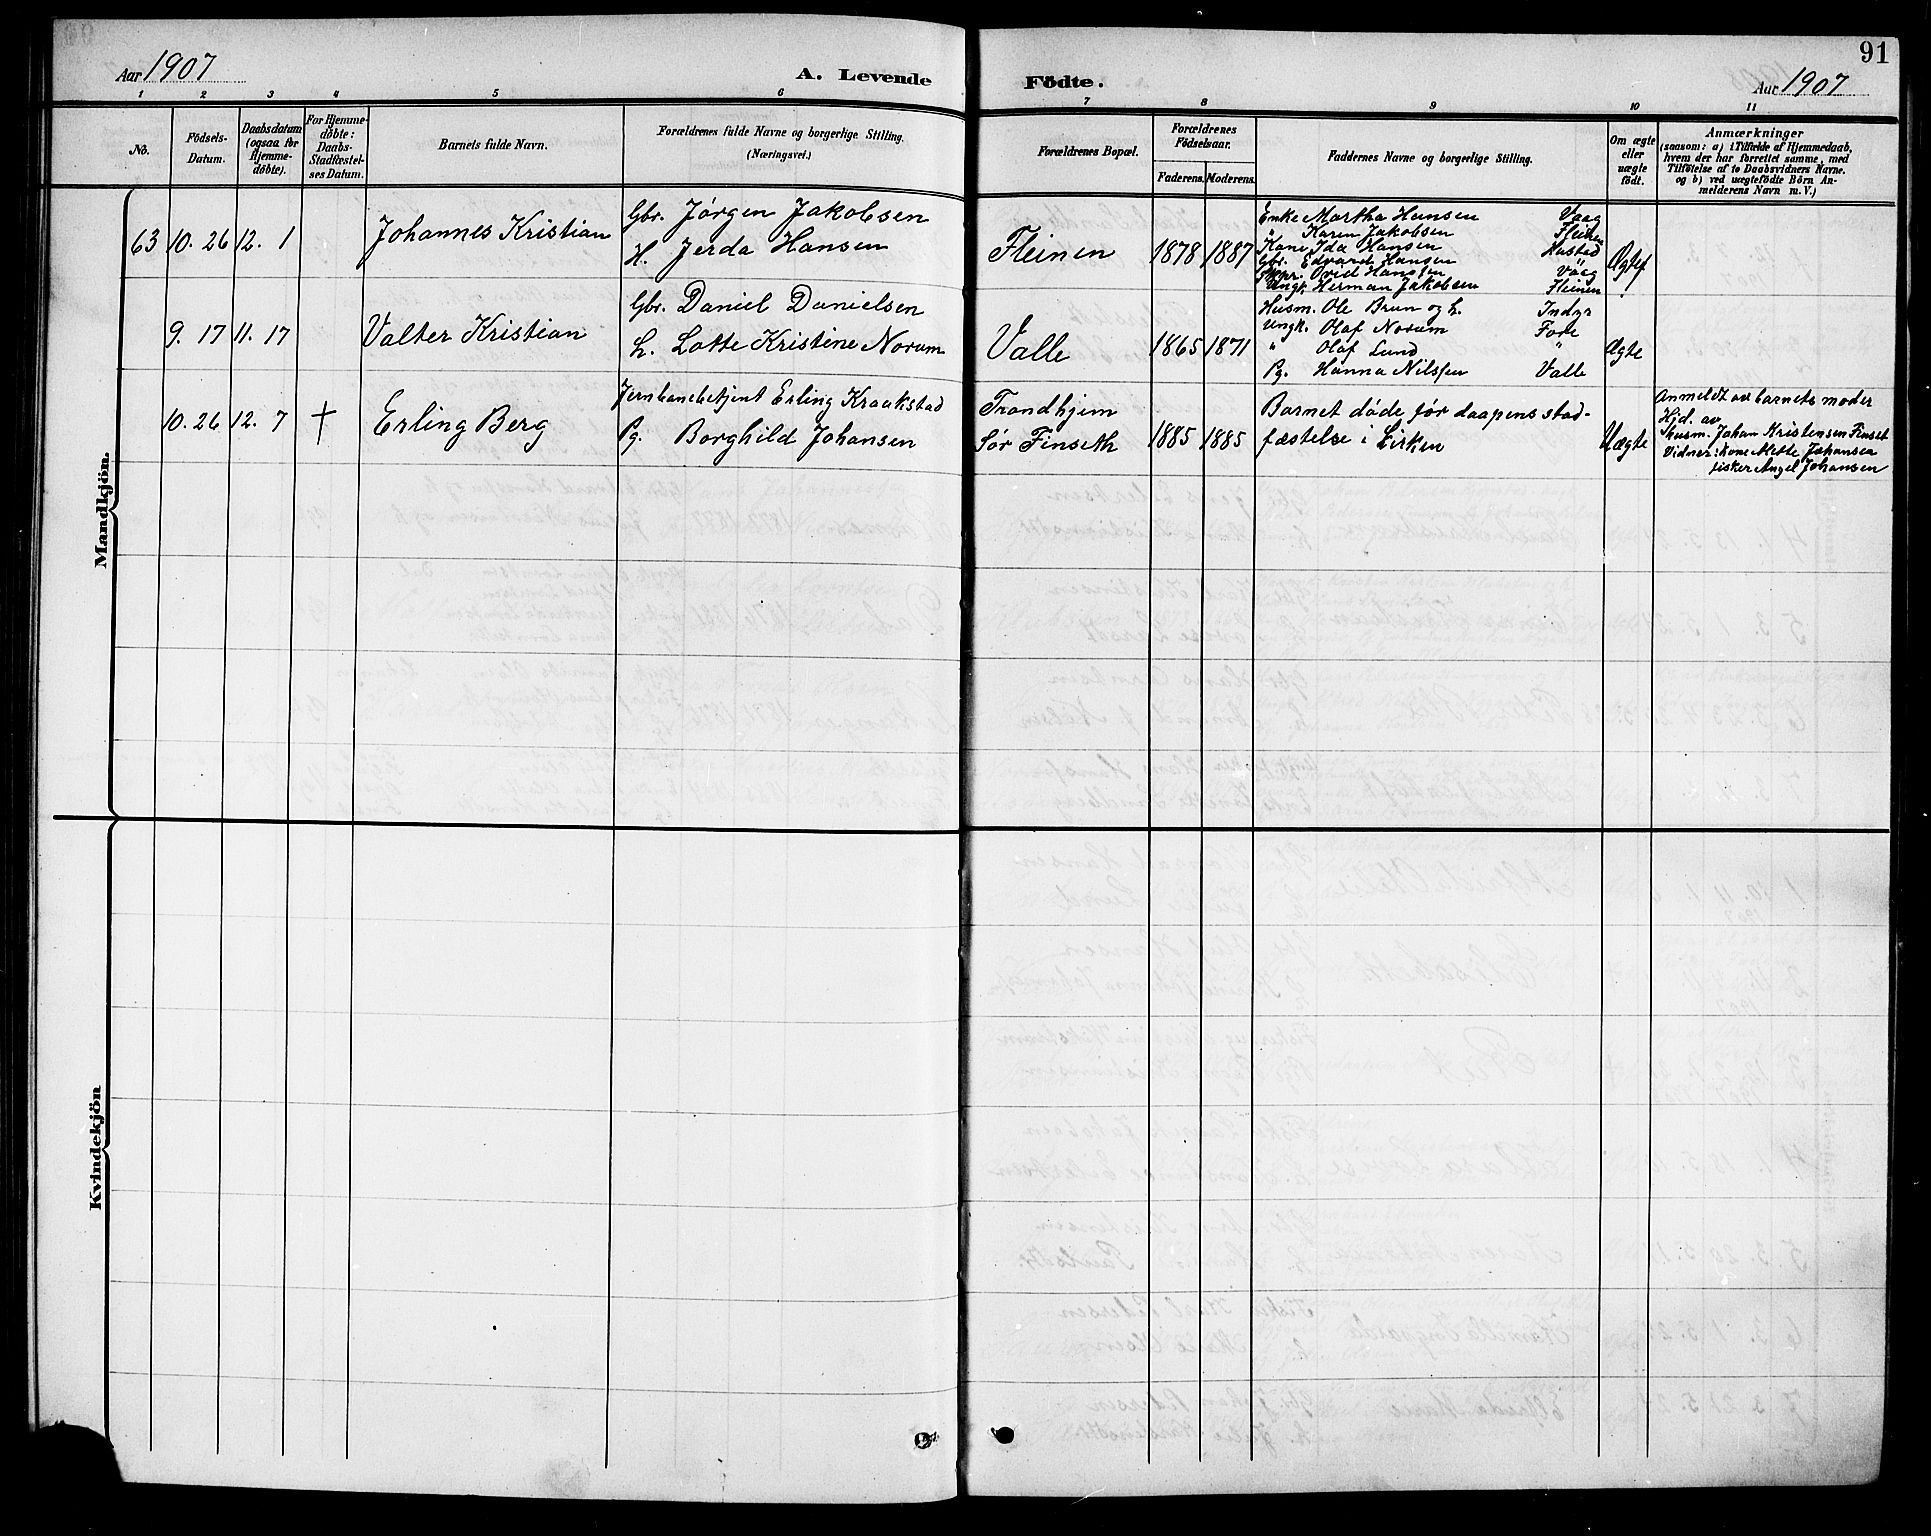 91
Aar 1907
A. Levende
Födte.
Aar 1907
1 2 3 4 5 6 7 8 9 10 11
No.
Födsels-
Datum.
Daabsdatum
(ogsaa for
Hjemme-
døbte).
For Hjemme-
døbte:
Daabs-
Stadfæstel-
ses Datum.
Barnets fulde Navn.
Forældrenes fulde Navne og borgerlige Stilling.
(Næringsvei.)
Forældrenes Bopæl.
Forældrenes
Födselsaar.
Faderens. Moderens.
Faddernes Navne og borgerlige Stilling.
Om ægte
eller
uægte
födt.
Anmærkninger
(saasom: a) i Tilfælde af Hjemmedaab,
hvem der har forrettet samme, med
Tilföielse af to Daabsvidners Navne.
og b) ved uægtefödte Börn An-
melderens Navn m. V.)
Mandkjön.
63 10. 26 12. 1
Johannes Kristian
Gbr. Jørgen Jakobsen
H. Jerda Hansen
Fleinen
1878 1887
Enke Martha Hansen Vaag
" Karen Jakobsen Fleinen
Kone Ida Hansen Kastad
Gbr. Edvard Hansen "
Ovid Hansen Vaag
Ungk. Herman Jakobsen Fleinen
Ægtef
9. 17 11. 17
Valter Kristian
Gbr. Daniel Danielsen
h. Lotte Kristine Norum
Valle
1865 1871
Husm. Ole Brun og h. Indyr
Ungk. Olaf Norum Fore
" Olaf Lund "
Pg. Hanna Nilssen Valle
Ægte
10. 26 12. 7 †
Erling Berg
Jernbanebetjent Erling Kraakstad
Pg. Borghild Johansen
Trondhjem
Sør Finseth
1885 1885
Barnet døde før daapens stad-
fæstelse i kirken
Uægte
Anmeldt av barnets moder
Hjd. av
husm. Johan Kristensen Finset
Vidner: kone Mette Johansen
fisker Angel Johansen
Kvindekjön